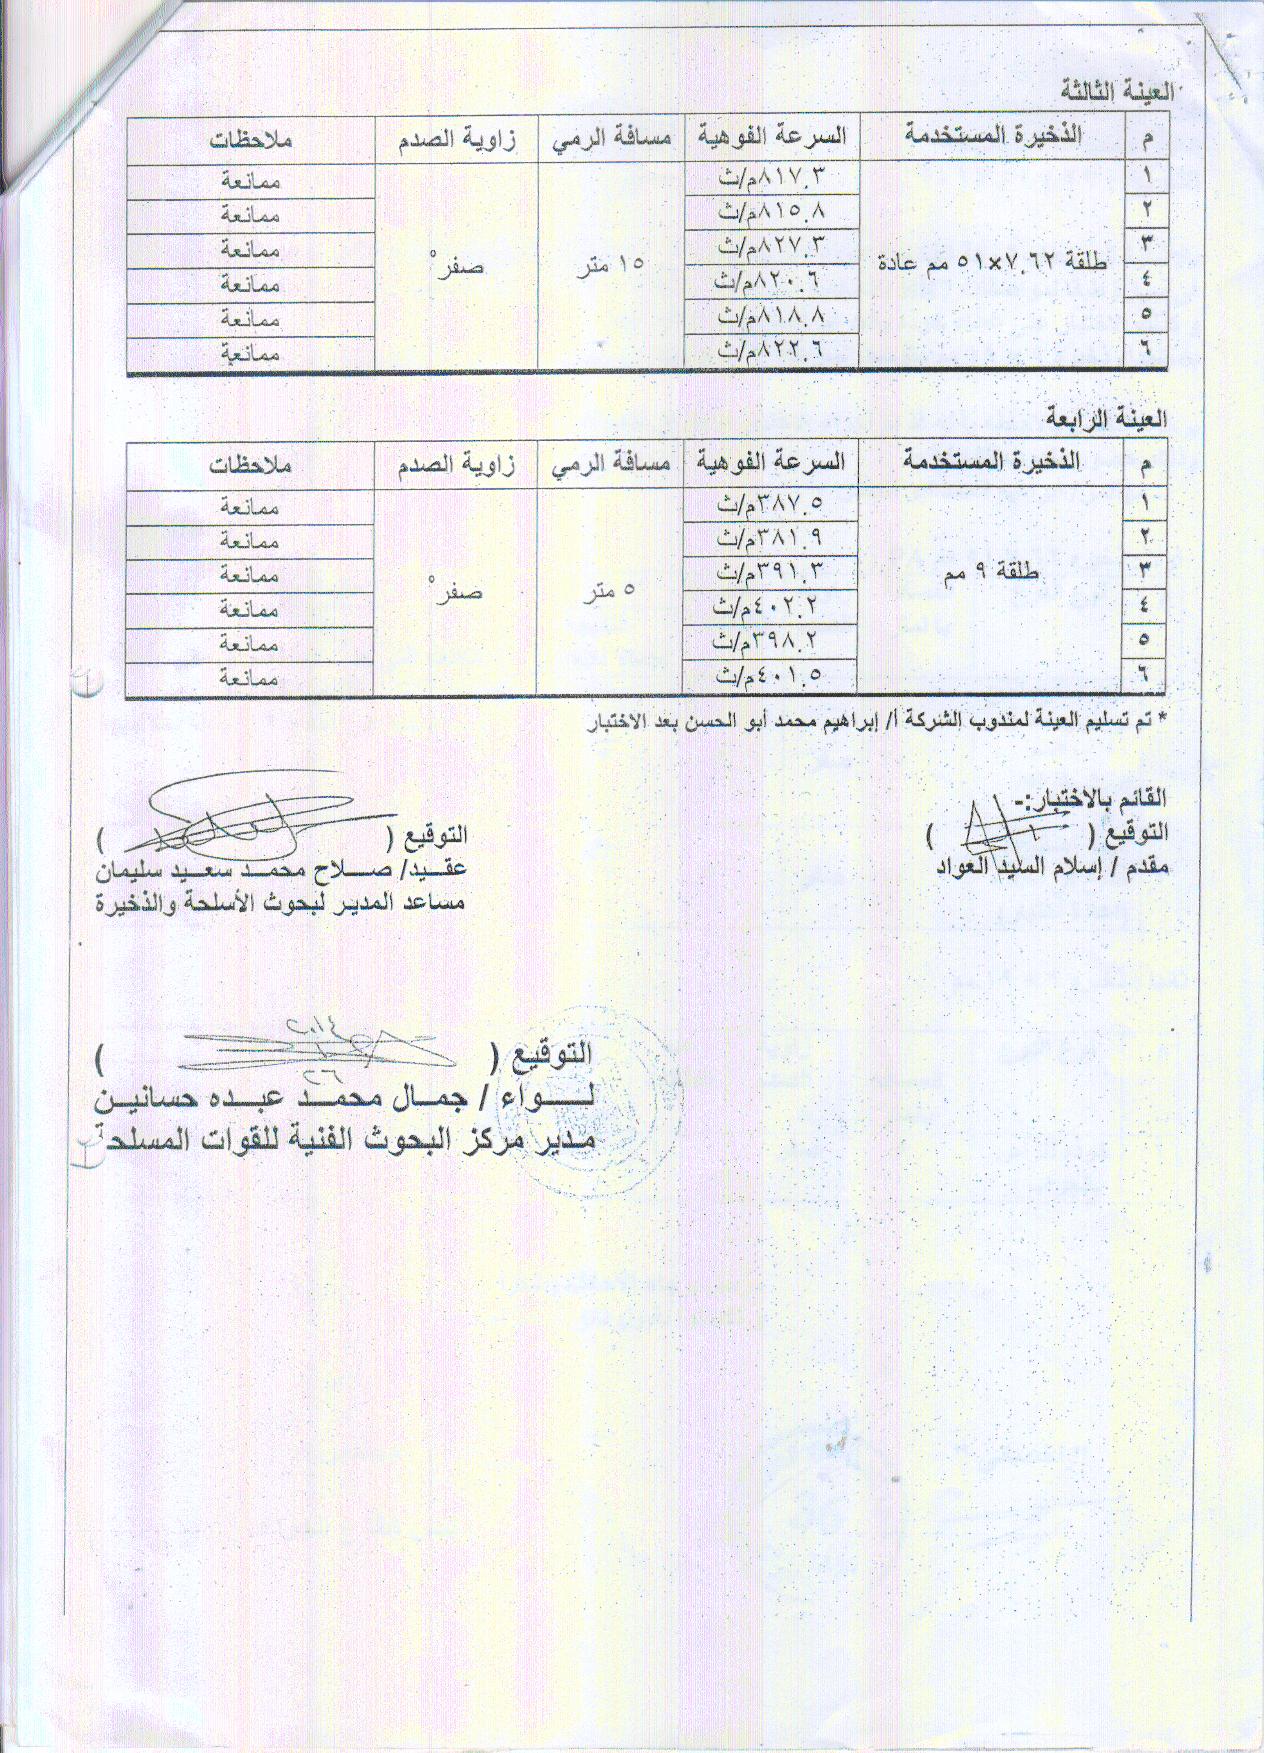 العينة الثالثة
م الذخيرة المستخدمة السرعة الفوهية مسافة الرمي زاوية الصدم ملاحظات
١ طلقة ٧.٦٢×٥١ مم عادة ٨١٧.٣م/ث ١٥ متر صفر° ممانعة
٢ ٨١٥.٨م/ث ممانعة
٣ ٨٢٧.٣م/ث ممانعة
٤ ٨٢٠.٦م/ث ممانعة
٥ ٨١٨.٨م/ث ممانعة
٦ ٨٢٢.٦م/ث ممانعة
العينة الرابعة
م الذخيرة المستخدمة السرعة الفوهية مسافة الرمي زاوية الصدم ملاحظات
١ طلقة ٩ مم ٣٨٧.٥م/ث ٥ متر صفر° ممانعة
٢ ٣٨١.٩م/ث ممانعة
٣ ٣٩١.٣م/ث ممانعة
٤ ٤٠٢.٢م/ث ممانعة
٥ ٣٩٨.٢م/ث ممانعة
٦ ٤٠١.٥م/ث ممانعة
* تم تسليم العينة لمندوب الشركة أ/ إبراهيم محمد أبو الحسن بعد الاختبار
القائم بالاختبار:-
التوقيع ( )
مقدم / إسلام السيد العواد
التوقيع ( )
عقيد/ صلاح محمد سعيد سليمان
مساعد المدير لبحوث الأسلحة والذخيرة
٢٠١٤
التوقيع ( )
٢٦
لواء / جمال محمد عبده حسانين
مدير مركز البحوث الفنية للقوات المسلحة